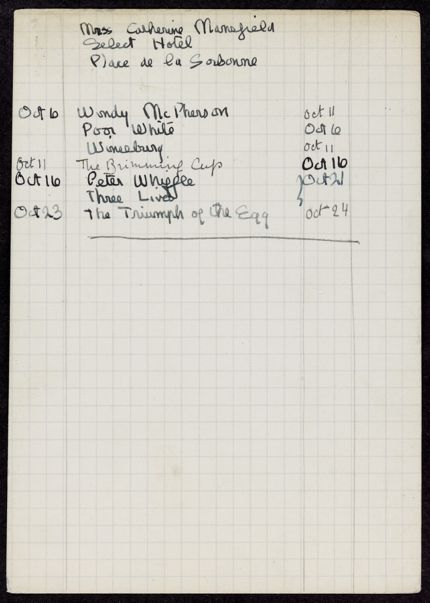 Miss Catherine Mansfield
Select Hotel
Place de la Sorbonne
Oct 6 Windy McPherson Oct 11
Poor White Oct 6
Winesburg Oct 11
Oct 11 The Brimming Cup Oct 16
Oct 16 Peter Whiffle } Oct 21
Three Lives
Oct 23 The Triumph of the Egg Oct 24